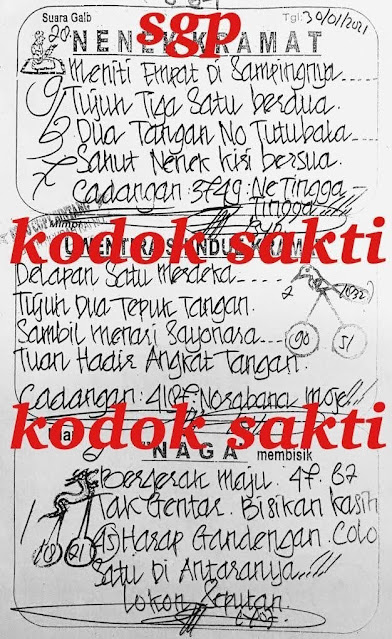 Suara Gaib
Tgl: 30/01/2021
NENEK KRAMAT
sgp
Meniti Empat Di Sampingnya
Tujuh Tiga Satu berdua.
Dua Tangan No Tutubala
Sahut Nenek Kisi bersua.
Cadangan: 3749: Ne Tingga
Tingga
kodok sakti
Delapan Satu Merdeka
Tujuh Dua Tepuk Tangan.
Sambil menari Sayonara
90 51
Tuan Hadir Angkat Tangan.
Cadangan:
kodok sakti
"NAGA" membisik
Bergerak Maju. 47. 67
Tak Gentar. Bisikan kasih
Harap Gandengan. Colo
Satu Di Antaranya